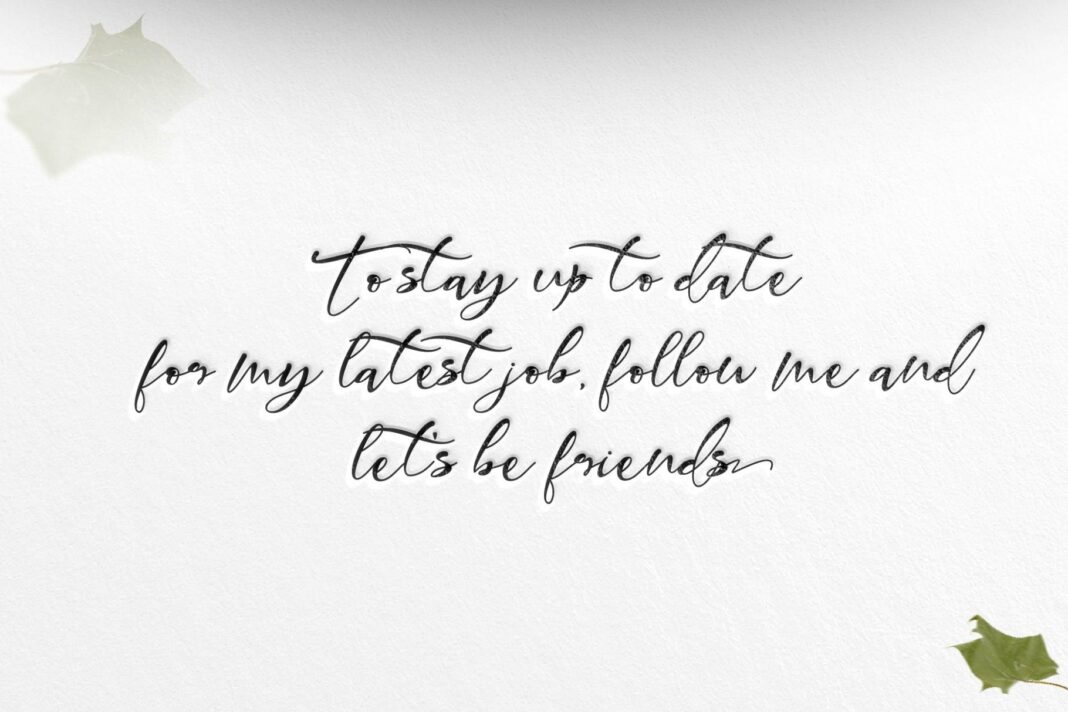 To stay up to date
for my latest job, follow me and
let's be friends